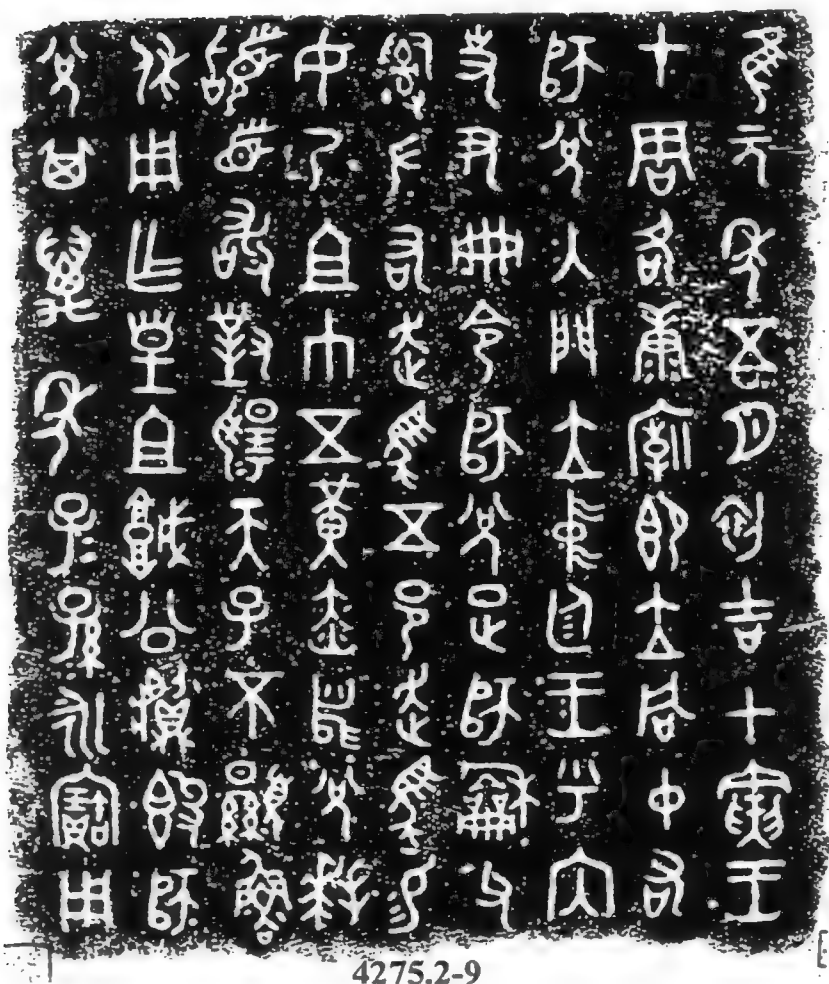 隹元年五月初吉甲寅王
才周各康廟即立同中右
師兌入門立中廷王乎內
史尹冊令師兌疋師龢父
𤔲左右走馬五邑走馬易
女乃且巾五黃赤舄兌拜
𩒨首敢對揚天子不顯魯
休用乍皇且城公䵼簋師
兌其萬年子=孫=永寶用
4275.2-9